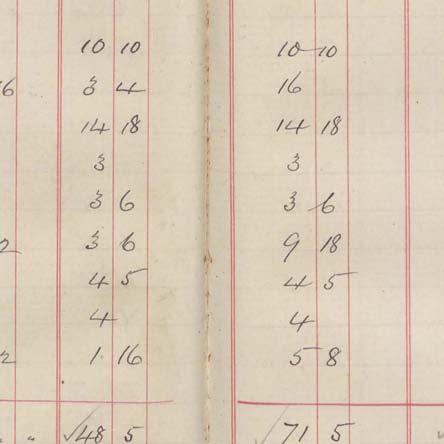 10 10
3 4
14 18
3
3 6
2 3 6
4 5
4
2 1 16
" √48 5
10 10
16
14 18
3
3 6
9 18
4 5
4
5 8
√71 5